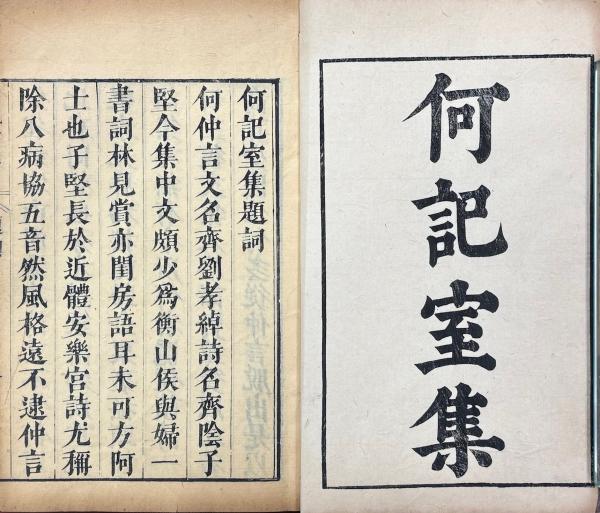 何記室集
何記室集題詞
何仲言文名齊劉孝綽詩名齊陰子
堅今集中文頗少爲衡山侯與婦一
書詞林見賞亦閨房語耳未可方阿
士也子堅長於近體安樂宮詩尤稱
除八病協五音然風格遠不逮仲言